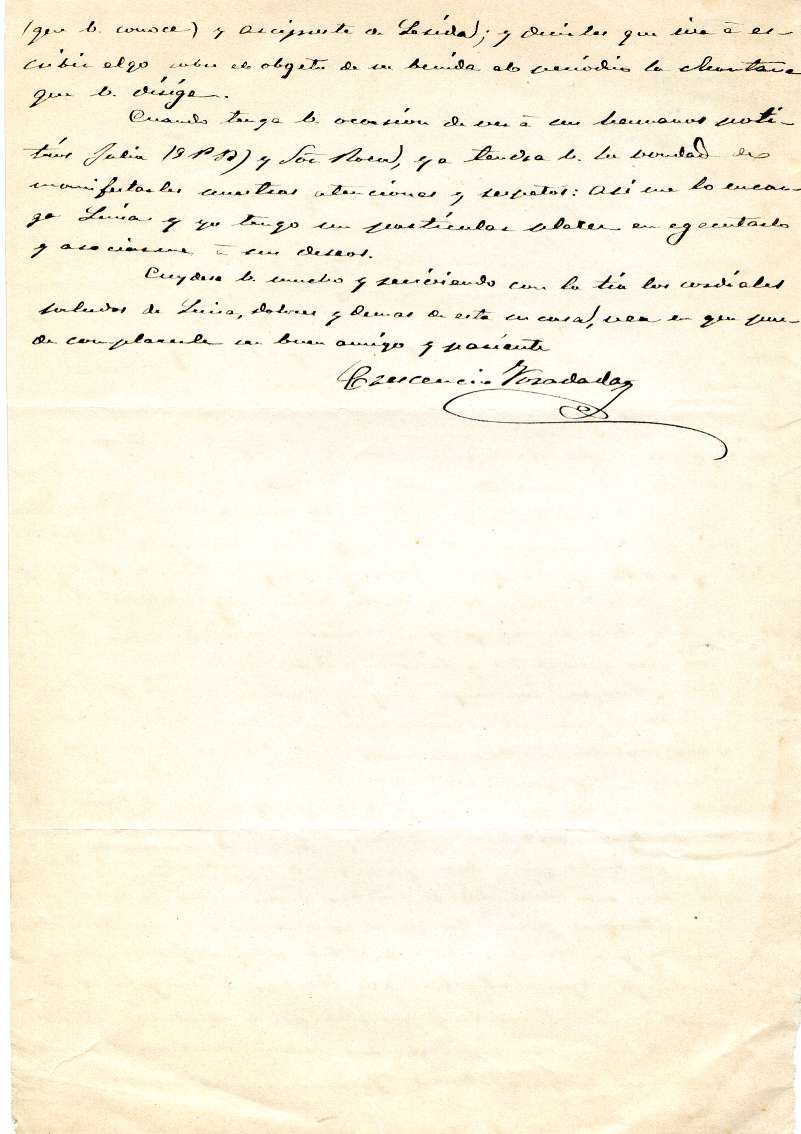 (que V. conoce) y arcipreste de Lérida); y decirles que iva á es-
cribir algo sobre el objeto de su benida al periódico la Montaña
que V. dirige.
Cuando tenga V. ocasion de ver á sus hermanos
Julia (Q P B) y Sor Rosa), ya tendra V. la bondad de
manifestarles nuestras atenciones y respetos: Asi me lo encar-
ga Luisa y yo tengo un particular placer en egecutarlo
y asociarme á sus deseos.
Cuydese V. mucho y reciviendo con la tía los cordiales
saludos de Luisa, Dolores y demas de esta su casa), vea en que pue-
de complacerle su buen amigo y pariente
Crescencio